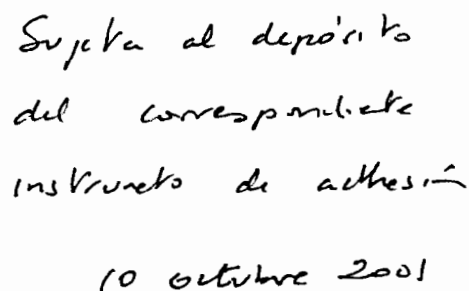 Sujeta al depósito
del correspondiente
instrumento de adhesión
10 octubre 2001